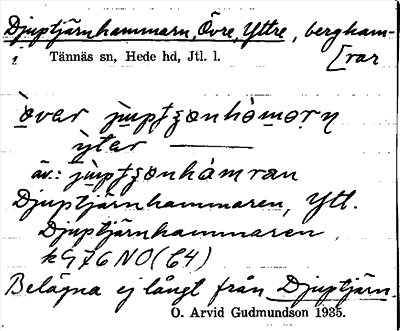 Djuptjärnhammarn, Övre, Yttre, bergham-
[rar
i Tännäs sn, Hede hd, Jtl. l.
ytar ———
äv.:
Djuptjärnhammaren, Ytt.
Djuptjärnhammaren
kG76NO(C4)
Belägna ej långt från Djuptjärn.
O. Arvid Gudmundson 1935.